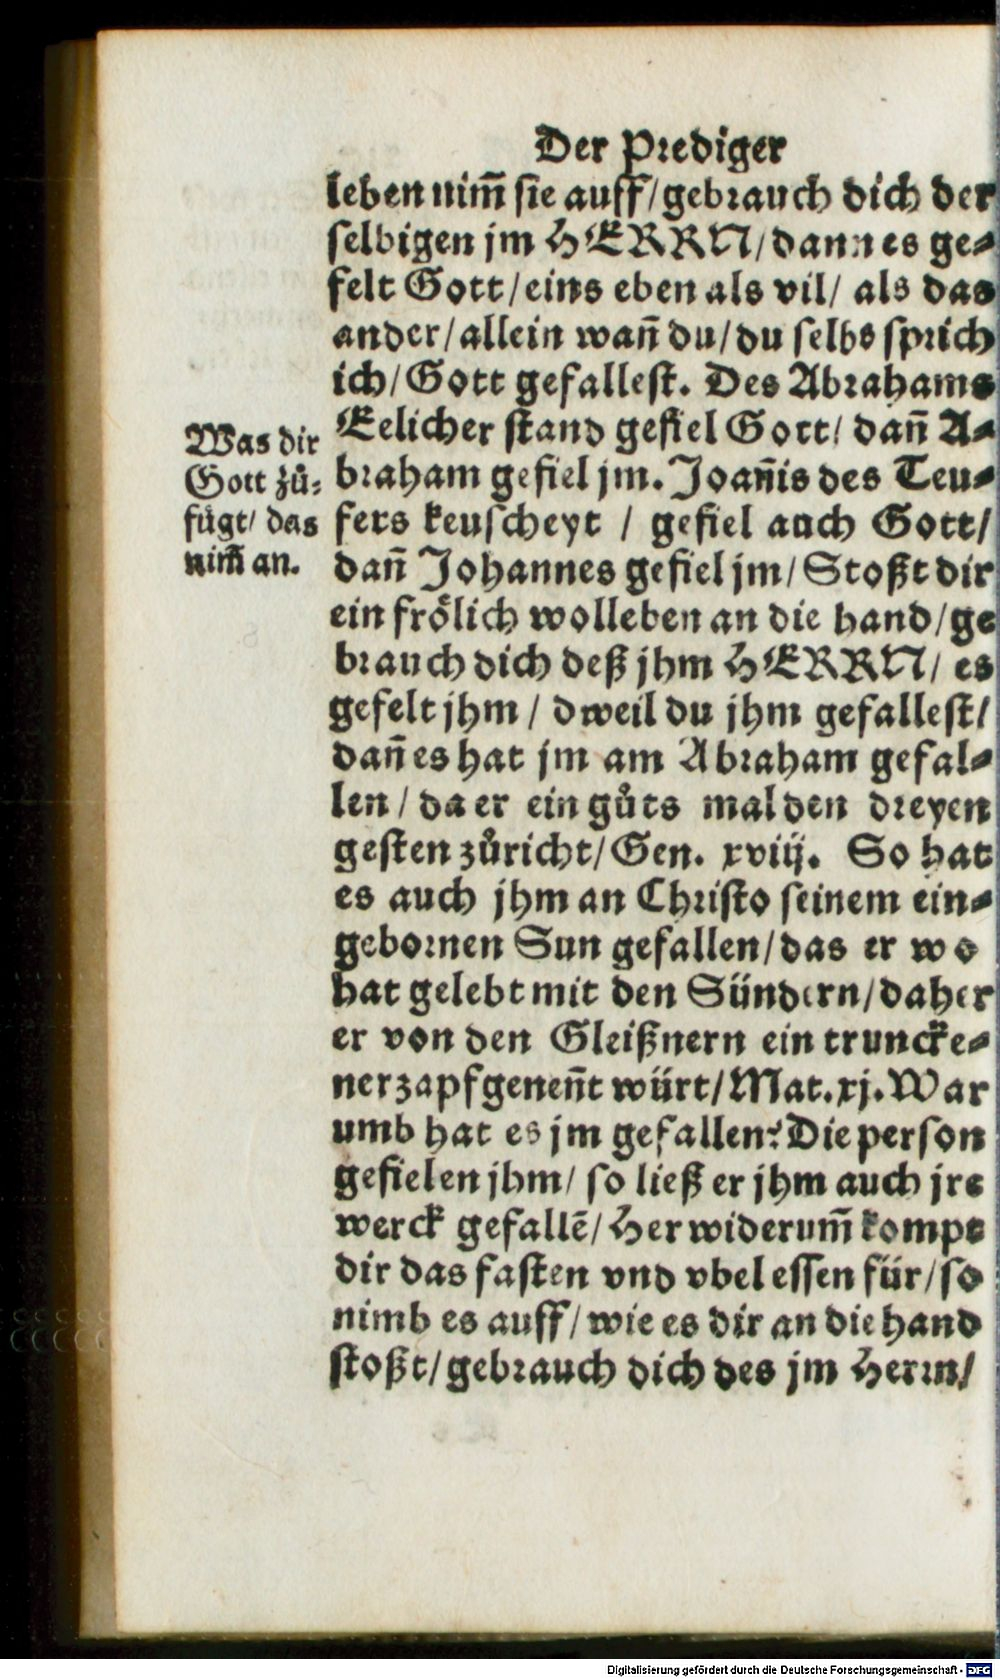 Der Prediger
leben nim̃ sie auff/gebrauch dich der
selbigen jm HERRN/dann es ge-
felt Gott/eins eben als vil/ als das
ander/allein wañ du/du selbs sprich
ich/Gott gefallest. Des Abrahams
Eelicher stand gefiel Gott/ dañ A-
braham gefiel jm. Joañis des Teu-
fers keuscheyt / gefiel auch Gott/
dañ Johannes gefiel jm/Stoßt dir
ein froͤlich wolleben an die hand/ge
brauch dich deß jhm HERRN/ es
gefelt jhm / dweil du jhm gefallest/
dañ es hat jm am Abraham gefal-
len / da er ein guͦts mal den dreyen
gesten zuͦricht/Gen. xviij. So hat
es auch jhm an Christo seinem ein-
gebornen Sun gefallen/das er wo
hat gelebt mit den Sündern/daher
er von den Gleißnern ein truncke-
ner zapf geneñt würt/Mat.xj.War
umb hat es jm gefallen? Die person
gefielen jhm/ so ließ er jhm auch jre
werck gefallẽ/Her widerum̃ kompt
dir das fasten vnd vbel essen für/so
nimb es auff/wie es dir an die hand
stoßt/gebrauch dich des jm Herrn/
Was dir
Gott zuͦ-
fügt/ das
nim̃ an.
Digitalisierung gefördert durch die Deutsche Forschungsgemeinschaft - DFG